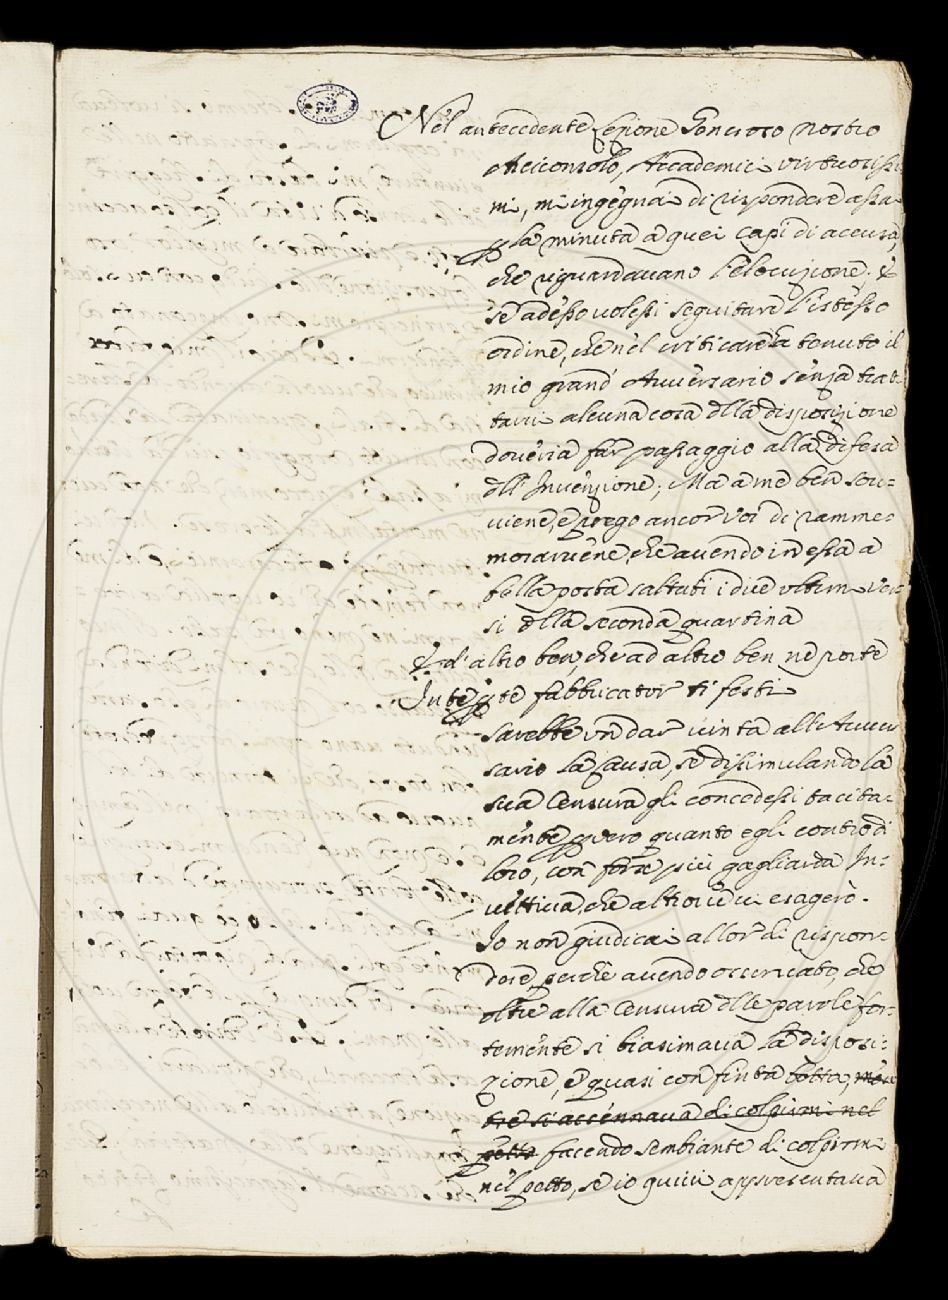 Nel antecedente Lezione Generoso nostro
Arciconsolo, Accademici virtuosissi
mi, m'ingegnai di rispondere assai
p la minuta a quei capi di accusa,
che riguardavano l'elocuzione. E
se adesso volessi seguitare l'istesso
ordine, che nel criticare ha tenuto il
mio grand' Avversario senza trat=
tarvi alcuna cosa dlla disposizione
doveria far passaggio alla difesa
dll' Invenzione; Ma a me ben sov=
viene, e prego ancor voi di ramme=
morarvene, che avendo in essa a
bella posta saltati i due ultimi ver=
si dlla seconda quartina
E d'altro ben, che ad altro ben ne porte
In te p te fabbricator ti festi
sarebbe un dar vinta all'Avver
sario la causa, se dissimulando la
sua Censura gli concedessi tacita=
mente p vero quanto egli contro di
loro, con forse piu gagliarda In=
vettiva, che altrove vi esagerò.
Io non giudicai allor di rispon=
dere, perche avendo osservato, che
oltre alla Censura dlle parole for=
temente si biasimava la disposi=
zione, e quasi con finta botta, men
tre si accennava di colpirmi nel
petto facendo sembiante di colpirmi
nel petto, se io quivi appresentava